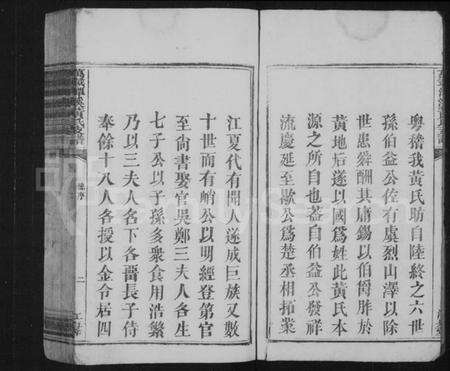 粵稽我黃氏助自陸終之六世
孫伯益公佐有虞烈山澤以除
世患舜酬其庸錫以伯爵胙於
黃地后遂以國為姓此黃氏本
源之所自也蓋自伯益公發祥
流慶延至歇公為楚丞相拓業
江夏代有聞人遂成巨族又數
十世而有峭公以明經登第官
至尚書娶官吳鄭三夫人各生
七子公以子孫多衆食用浩繁
乃以三夫人名下各嗇長子侍
奉餘十八人各授以金令居四